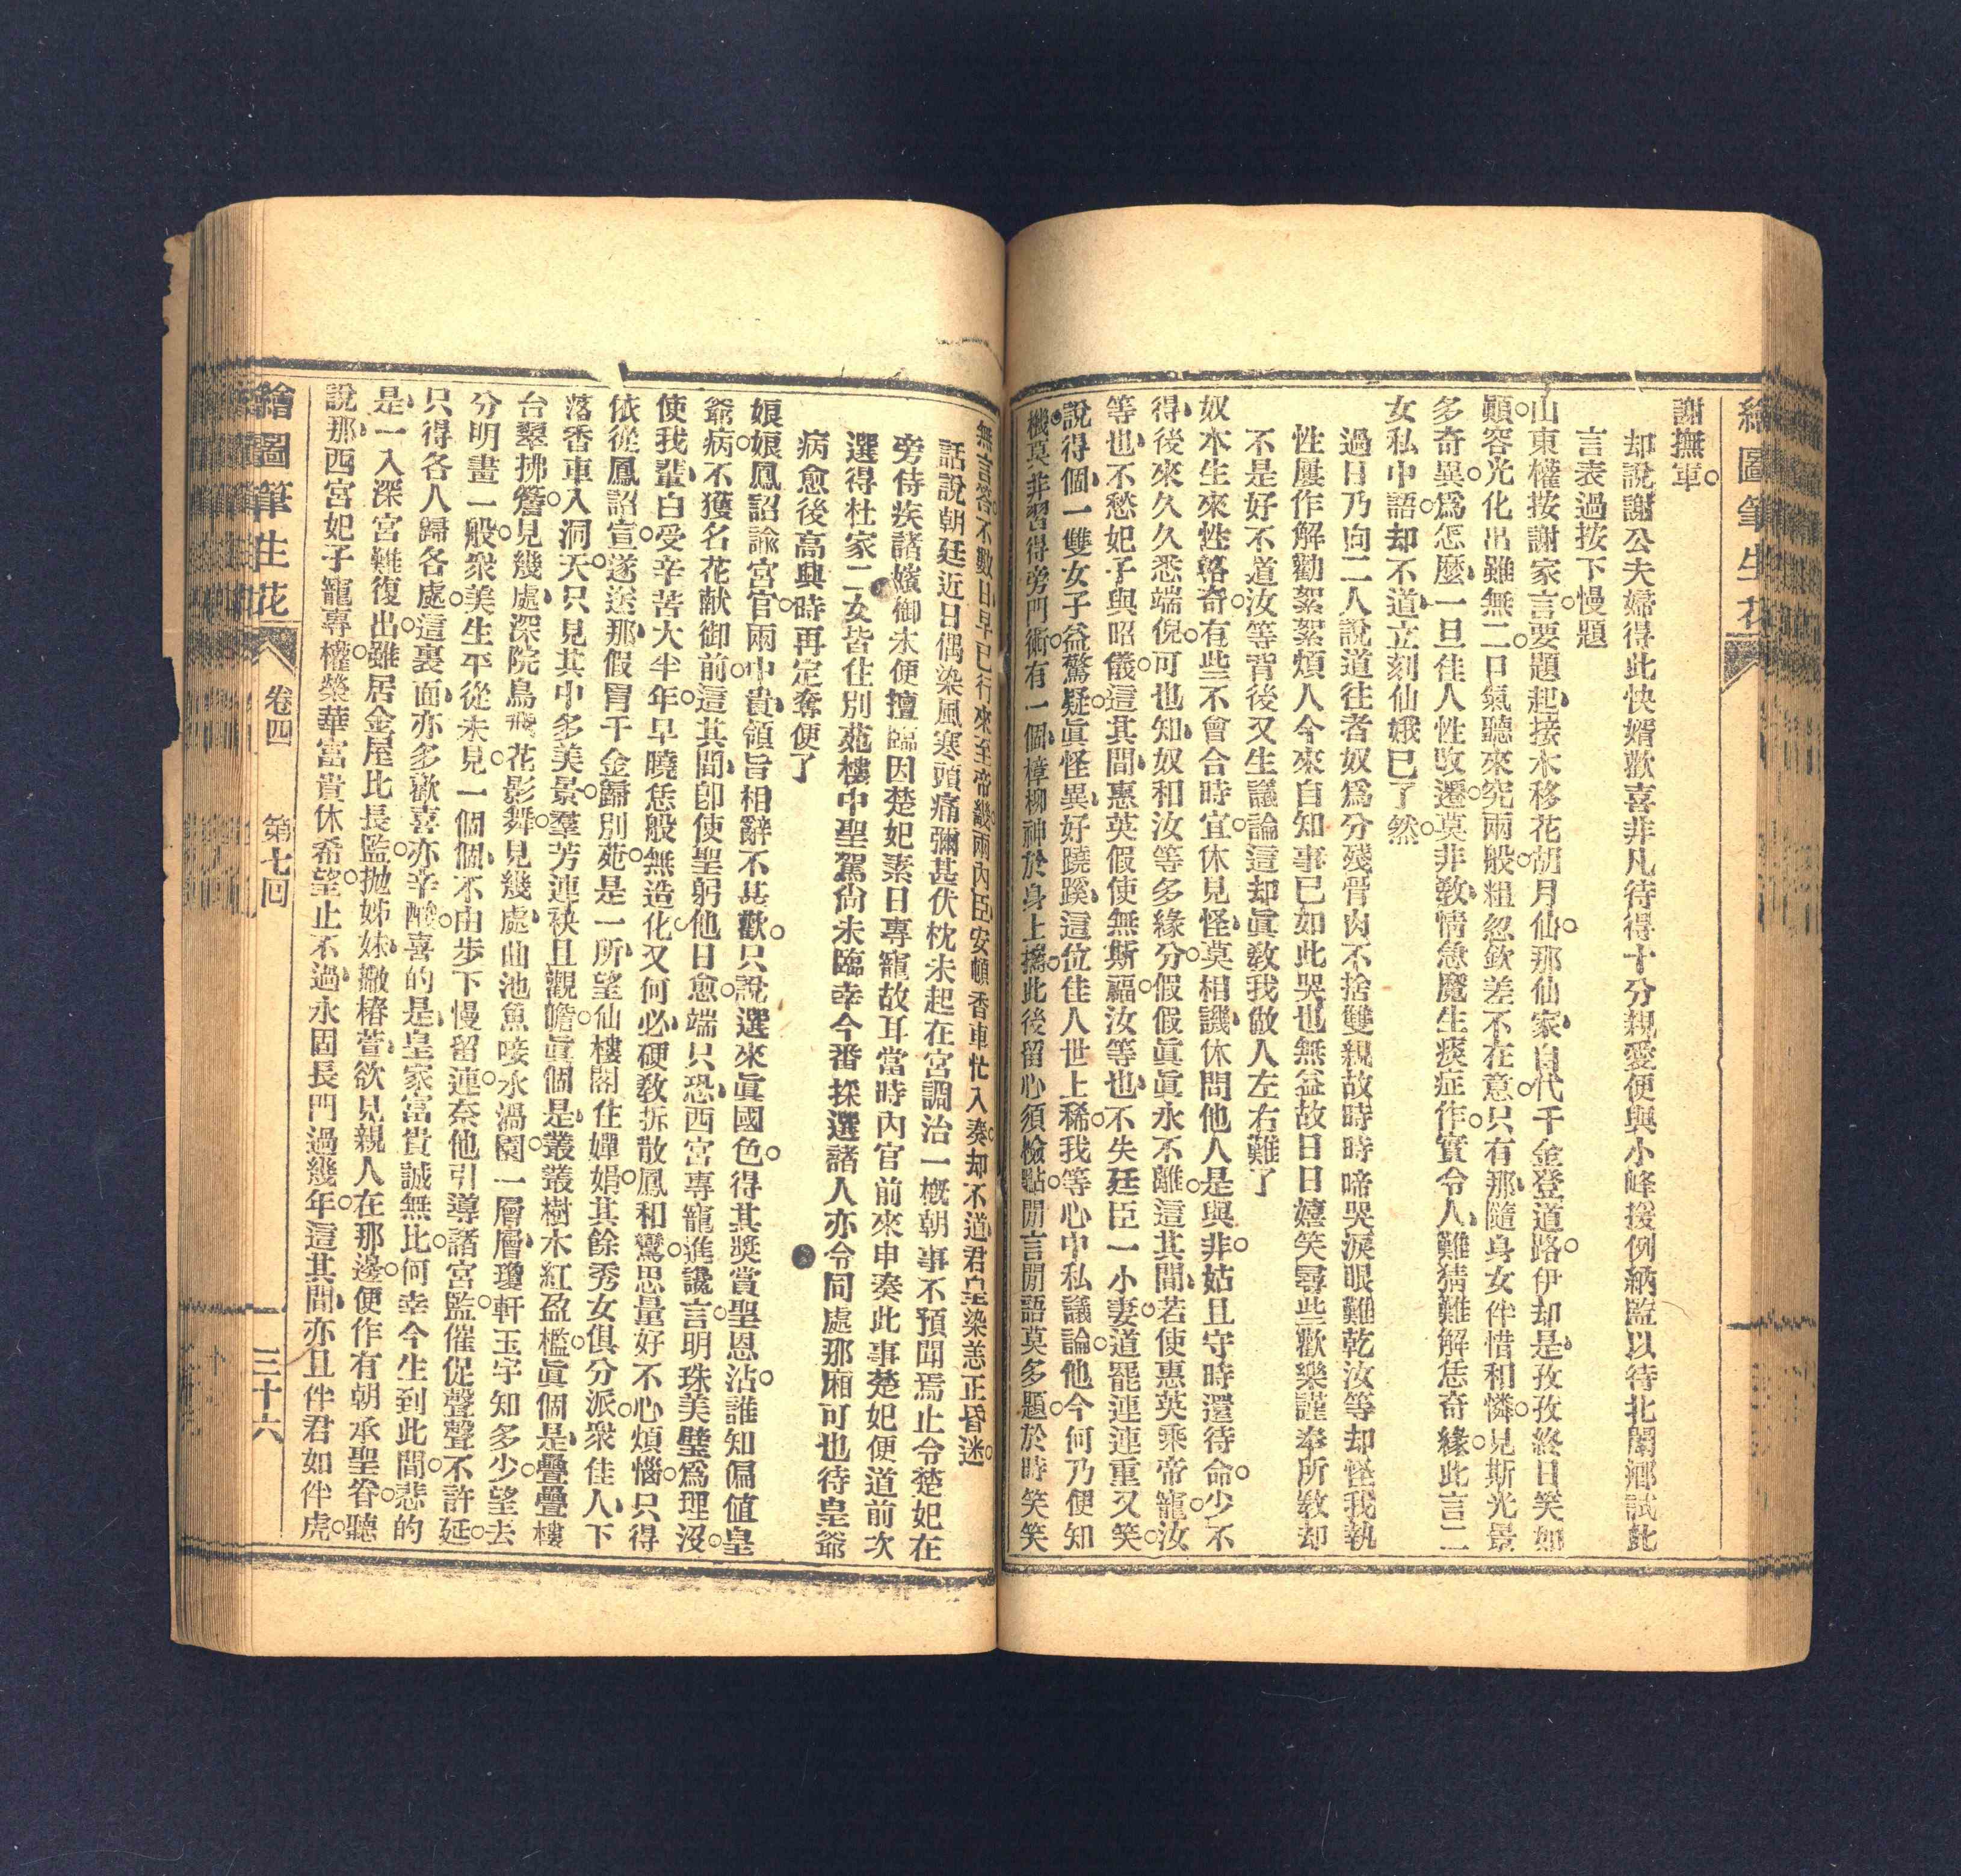 繪圖筆生花
謝撫軍。
却說謝公夫婦得此快婿歡喜非凡待得十分親愛便與小峰援例納監以待北闈鄉試此
言表過按下慢題
山東權按謝家言。要題起、接木移花胡月仙。那仙家、自代千金登道路。伊却是、孜孜終日笑如
顚。容光化出雖無二。口氣聽來究兩般。粗忽欽差不在意。只有那、隨身女伴惜和憐。見斯光景
多奇異。爲怎麼、一旦佳人性改遷。莫非教、情急魔生痰症作。實令人、難猜難解恁奇緣。此言二
女私中語。却不道、立刻仙娥已了然。
過日乃向二人說道往者奴爲分殘骨肉不捨雙親故時時啼哭淚眼難乾汝等却怪我執
性屢作解勸絮絮煩人今來自知事已如此哭也無益故日日嬉笑尋些歡樂謹奉所教却
不是好不道汝等背後又生議論這却眞教我做人左右難了
奴本生來性格奇。有些不曾合時宜。休見怪、莫相譏、休問他人是與非。姑且守時還待命。少不
得、後來久久悉端倪。可也知、奴和汝等多緣分。假假眞眞永不離。這其間、若使惠英乘帝寵。汝
等也、不愁妃子與昭儀。這其間、惠英假使無斯福。汝等也、不失廷臣一小妻。道罷連連重又笑。
說得個、一雙女子益驚疑。眞怪異、好蹺蹊、這位佳人世上稀。我等心中私議論。他今何乃便知
機。莫非習得旁門術。有一個、樟柳神於身上攜。此後留心須檢點。閒言閒語莫多題。於時笑笑
無言答。不數日、早已行來至帝畿。兩內臣、安頓香車忙入奏。却不道、君皇染恙正昏迷。
話說朝廷近日偶染風寒頭痛彌甚伏枕未起在宮調治一概朝事不預聞焉止令楚妃在
旁侍疾諸嬪御未便擅臨因楚妃素日專寵故耳當時內官前來申奏此事楚妃便道前次
選得杜家二女皆住別苑樓中聖駕尙未臨幸今番採選諸人亦令同處那廂可也待皇爺
病愈後高興時再定奪便了
娘娘鳳詔諭宮官。兩中貴、領旨相辭不甚歡。只說選來眞國色。得其獎賞聖恩沾。誰知偏值皇
爺病。不獲名花献御前。這其間、卽使聖躬他日愈。端只恐、西宮專寵進讒言。明珠美璧爲理沒。
使我輩、白受辛苦大半年。早曉恁般無造化。又何必、硬教拆散鳳和鸞。思量好不心煩惱。只得
依從鳳詔宣。遂送那、假冒千金歸別苑。是一所、望仙樓閣住嬋娟。其餘秀女俱分派。衆佳人、下
落香車入洞天。只見其中多美景。羣芳連袂且觀瞻。眞個是、叢叢樹木紅盈檻。眞個是、疊疊樓
台翠拂簷。見幾處、深院鳥飛花影舞。見幾處、曲池魚唼水渦圓。一層層、瓊軒玉宇知多少。望去
分明畫一般。衆美生平從未見。一個個、不由步下慢留連。奈他引導諸宮監。催促聲聲不許延。
只得各人歸各處。這裏面、亦多歡喜亦辛酸。喜的是、皇家富貴誠無比。何幸今生到此間。悲的
是、一入深宮難復出。雖居金屋比長監。拋姊妹、撇椿萱、欲見親人在那邊。便作有朝承聖眷。聽
說那、西宮妃子寵專權。榮華富貴休希望。止不過、永固長門過幾年。這其間、亦且伴君如伴虎。
繪圖筆生花
卷四
第七回
三十六